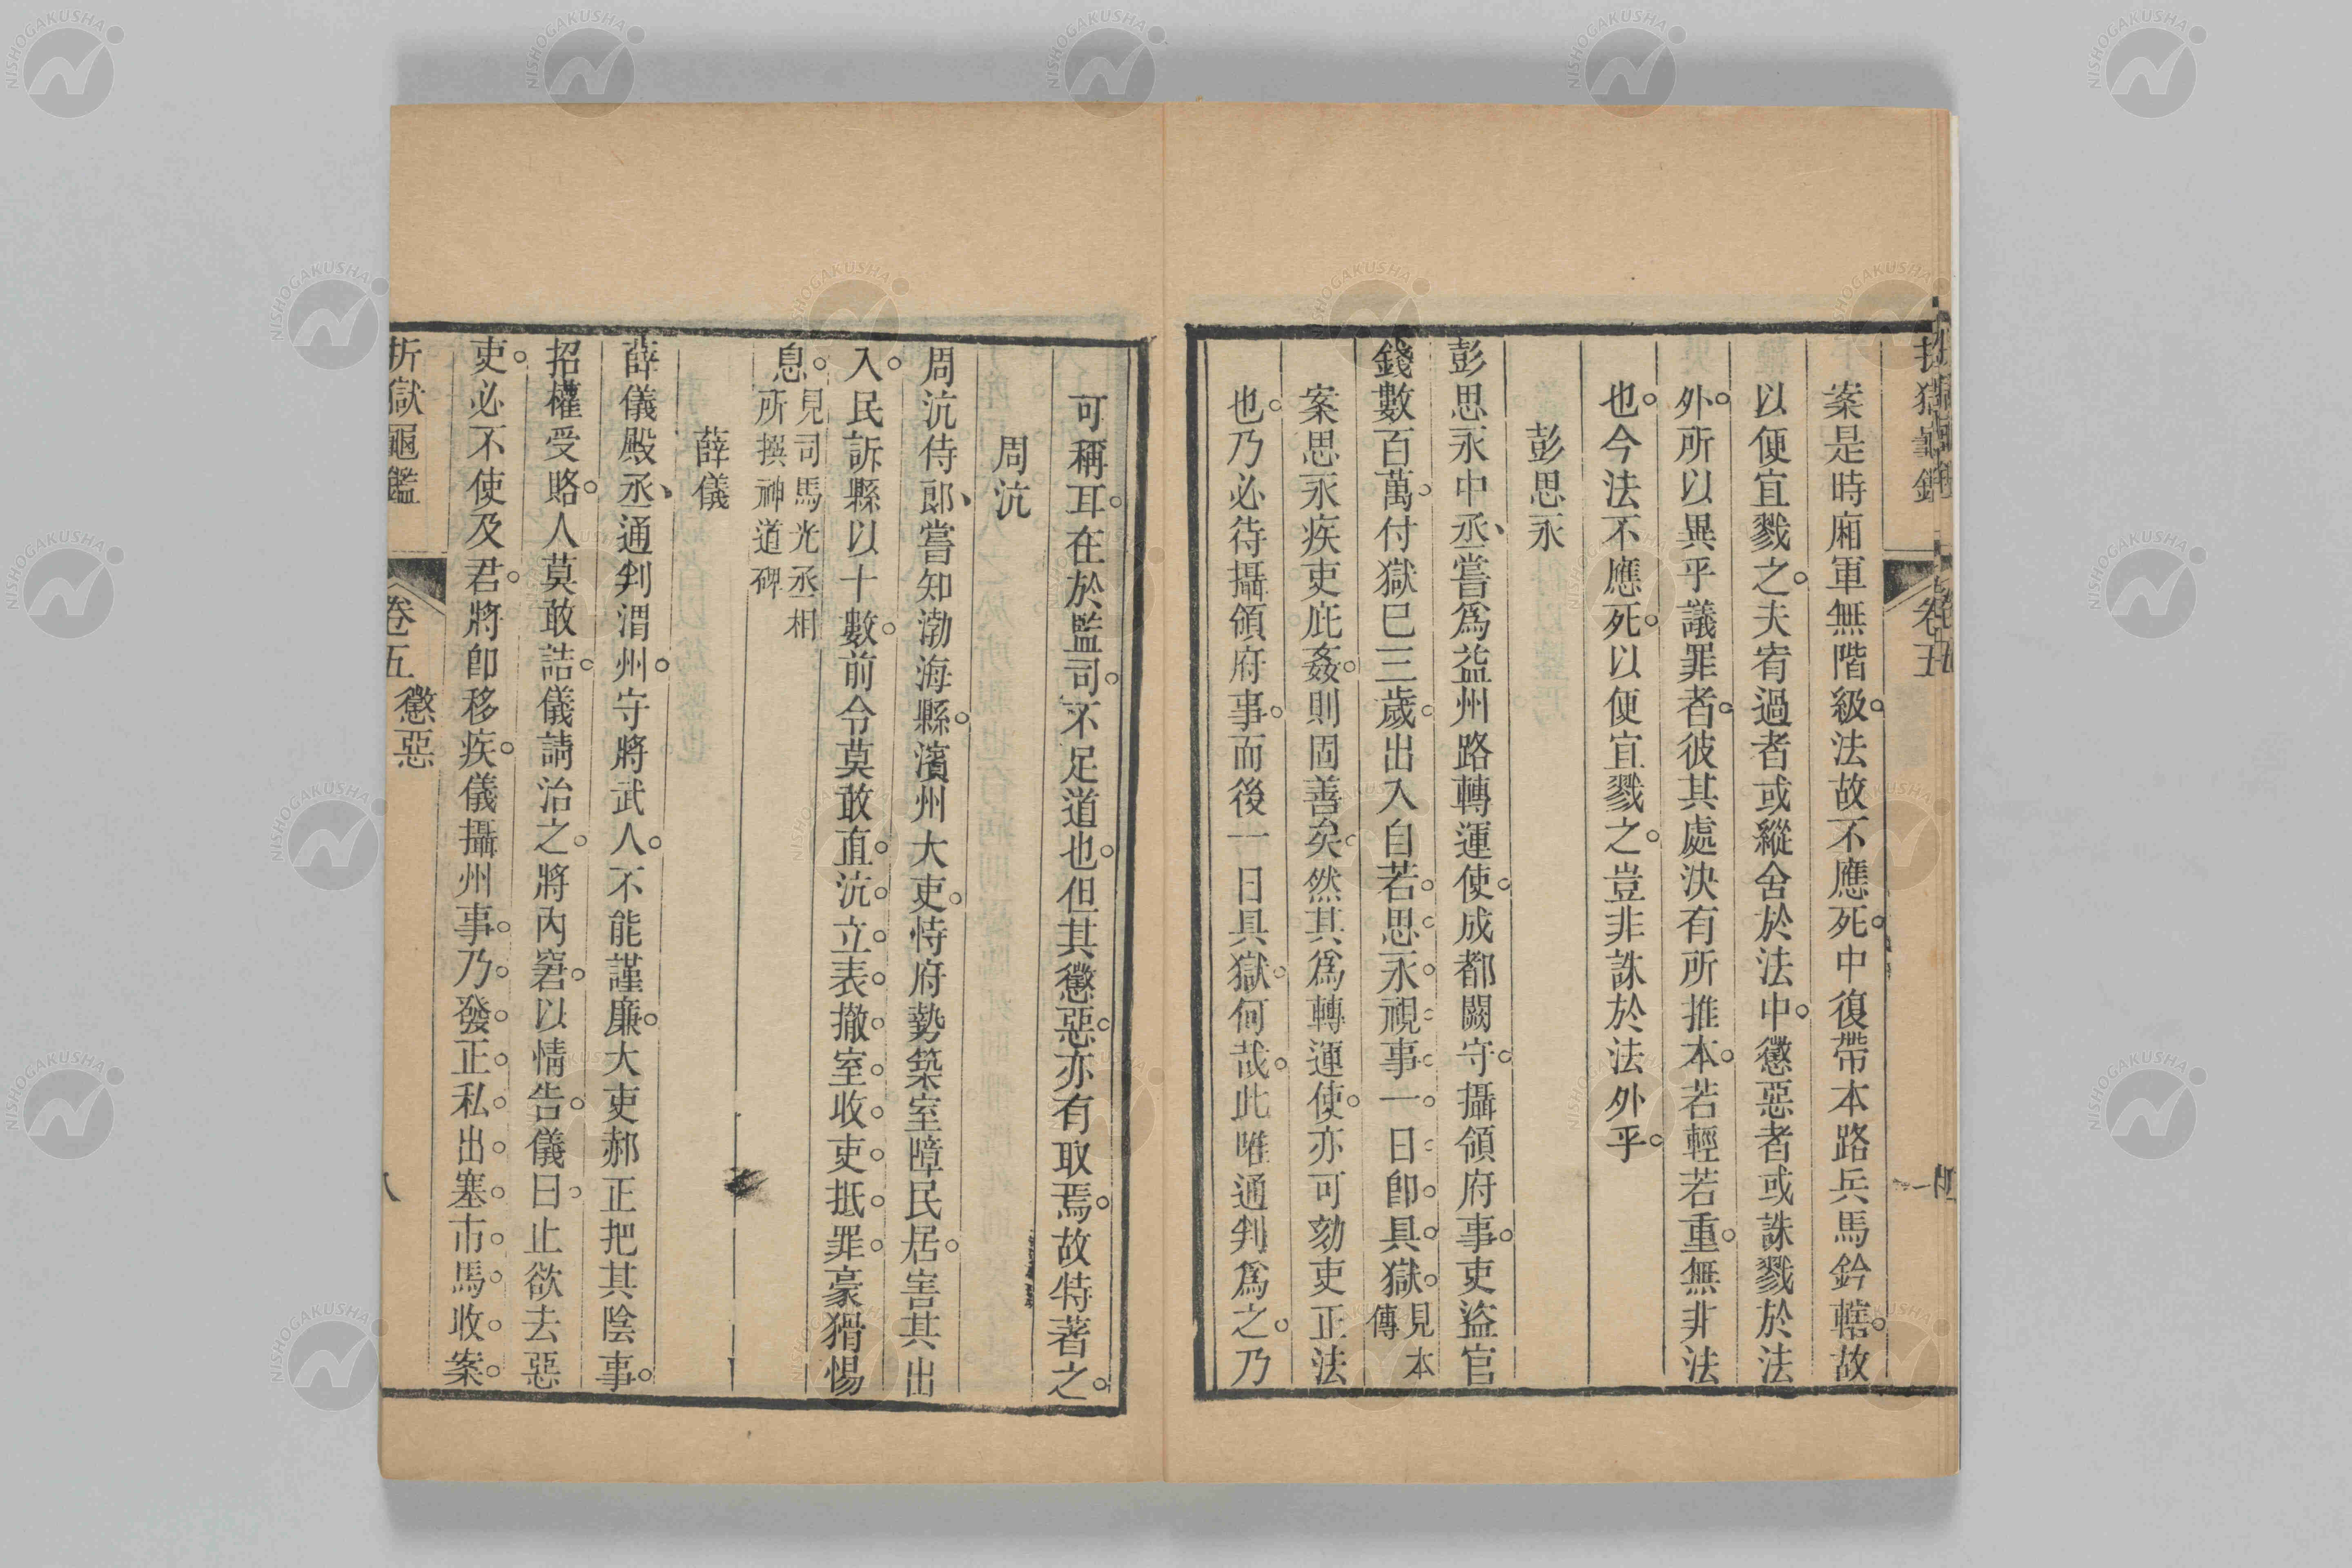 案是時廂軍無階級。法故不應死。中復帶本路兵馬鈐轄。故
以便宜戮之。夫宥過者或縱舍於法中。懲惡者或誅戮於法
外。所以異乎議罪者。彼其處決有所推本。若輕若重。無非法
也。今法不應死。以便宜戮之。豈非誅於法外乎。
彭思永
彭思永中丞、嘗爲益州路轉運使。成都闕守。攝領府事。吏盜官
錢數百萬。付獄巳三歲。出入自若。思永視事一日卽具獄。見本傳
案思永疾吏庇姦。則固善矣。然其爲轉運使。亦可劾吏正法
也。乃必待攝領府事。而後一日具獄。何哉。此唯通判爲之。乃
可稱耳。在於監司。不足道也。但其懲惡。亦有取焉。故特著之。
周沆
周沆侍郎、嘗知渤海縣。濱州大吏。恃府勢築室障民居。害其出
入。民訴縣以十數。前令莫敢直。沆立表撤室。收吏抵罪。豪猾惕
息。見司馬光丞相所撰神道碑
薛儀
薛儀殿丞、通判渭州。守將武人。不能謹廉。大吏郝正把其陰事。
招權受賂。人莫敢詰。儀請治之。將內窘。以情告。儀曰。止欲去惡
吏。必不使及君。將卽移疾。儀攝州事。乃發正私出塞市馬。收案。
折獄龜鑑
卷五 懲惡
八
卷五
NISHOGAKUSHA